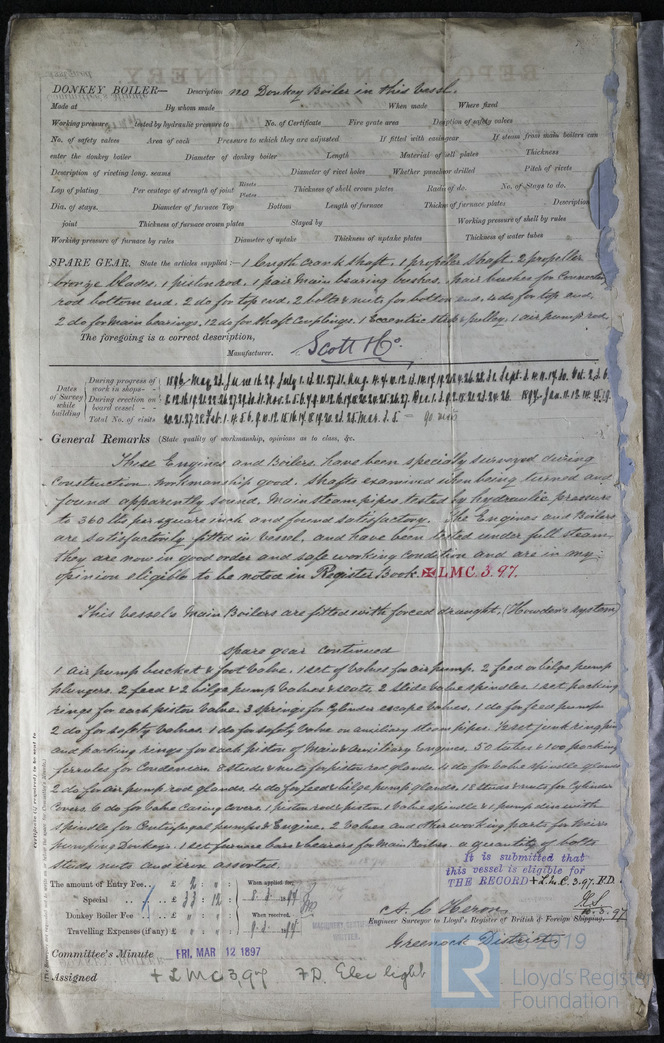 DONKEY BOILER— Description no Donkey Boiler in this Vessel.
Made at By whom made When made Where fixed
Working pressure tested by hydraulic pressure to No. of Certificate Fire grate area Description of safety valves
No. of safety valves Area of each Pressure to which they are adjusted If fitted with easing gear If steam from main boilers can
enter the donkey boiler Diameter of donkey boiler Length Material of shell plates Thickness
Description of riveting long. seams Diameter of rivet holes Whether punched or drilled Pitch of rivets
Lap of plating Per centage of strength of joint Rivets Plates Thickness of shell crown plates Radius of do. No. of Stays to do.
Dia. of stays. Diameter of furnace Top Bottom Length of furnace Thickness of furnace plates Description
joint Thickness of furnace crown plates Stayed by Working pressure of shell by rules
Working pressure of furnace by rules Diameter of uptake Thickness of uptake plates Thickness of water tubes
SPARE GEAR. State the articles supplied:— 1 length Crank shaft. 1 propeller shaft. 2 propeller
bronze blades. 1 piston rod. 1 pair Main bearing bushes. 1 pair bushes for Connecting
rod bottom end. 2 do for top end. 2 bolts & nuts for bottom end. 4 do for top end.
2 do for Main bearings. 12 do for shaft Couplings. 1 Eccentric strap & pulley. 1 air pump rod.
The foregoing is a correct description,
Manufacturer. Scott & Co.
Dates of Survey while building
During progress of work in shops - -
During erection on board vessel - - -
Total No. of visits
General Remarks (State quality of workmanship, opinions as to class, &c.
These Engines and Boilers have been specially surveyed during
Construction. Workmanship good. Shafts examined when being turned and
found apparently sound. Main steam pipes tested by hydraulic pressure
to 360 lbs per square inch and found satisfactory. The Engines and Boilers
are satisfactorily fitted in vessel, and have been tested under full steam
they are now in good order and safe working condition and are in my
opinion eligible to be noted in Register Book ✠LMC 3.97.
This Vessel's Main Boilers are fitted with forced draught. (Howden's system)
Spare gear continued
1 Air pump bucket & foot Valve. 1 set of Valves for air pump. 2 feed & bilge pump
plungers. 2 feed & 2 bilge pump Valves & seats. 2 Slide Valve spindles. 1 set packing
rings for each piston Valve. 3 springs for Cylinder escape Valves. 1 do for feed pump
2 do for safety Valves. 1 do for safety Valve on auxiliary steam pipe. 1 set junk ring
and packing rings for each piston of Main & Auxiliary Engines. 50 tubes & 100 packing
ferrules for Condenser. 8 studs & nuts for piston rod glands. 4 do for Valve spindle glands
2 do for air pump rod glands. 4 do for feed & bilge pump glands. 12 studs & nuts for Cylinder
Covers. 6 do for Valve Casing Covers. 1 piston rod & piston. 1 Valve spindle & 1 pump disc with
spindle for Centrifugal pumps & Engine. 2 Valves and other working parts for Weir's
pumping Donkeys. 1 set furnace bars & bearers for Main Boilers. a quantity of bolts
studs nuts and iron assorted.
It is submitted that
this vessel is eligible for
THE RECORD + L.M.C. 3.97. F.D.
The amount of Entry Fee.. £ 2 : " : When applied for,
Special .. .. £ 33 : 12 :
Donkey Boiler Fee .. £ " : " : When received,
Travelling Expenses (if any) £ " : " :
A. C. Heron
Engineer Surveyor to Lloyd's Register of British & Foreign Shipping.
Greenock District
Committee's Minute FRI. MAR 12 1897
Assigned + LMC 3,97 FD. Elec light
2019
LR
Lloyd's Register
Foundation